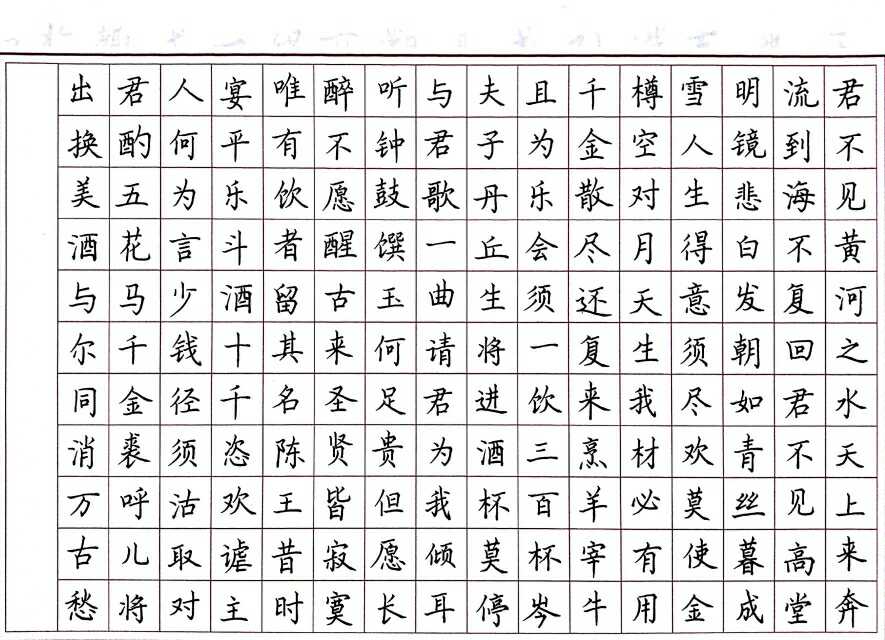 君不见黄河之水天上来奔
流到海不复回君不见高堂
明镜悲白发朝如青丝暮成
雪人生得意须尽欢莫使金
樽空对月天生我材必有用
千金散尽还复来烹羊宰牛
且为乐会须一饮三百杯岑
夫子丹丘生将进酒杯莫停
与君歌一曲请君为我倾耳
听钟鼓馔玉何足贵但愿长
醉不愿醒古来圣贤皆寂寞
唯有饮者留其名陈王昔时
宴平乐斗酒十千恣欢谑主
人何为言少钱径须沽取对
君酌五花马千金裘呼儿将
出换美酒与尔同消万古愁